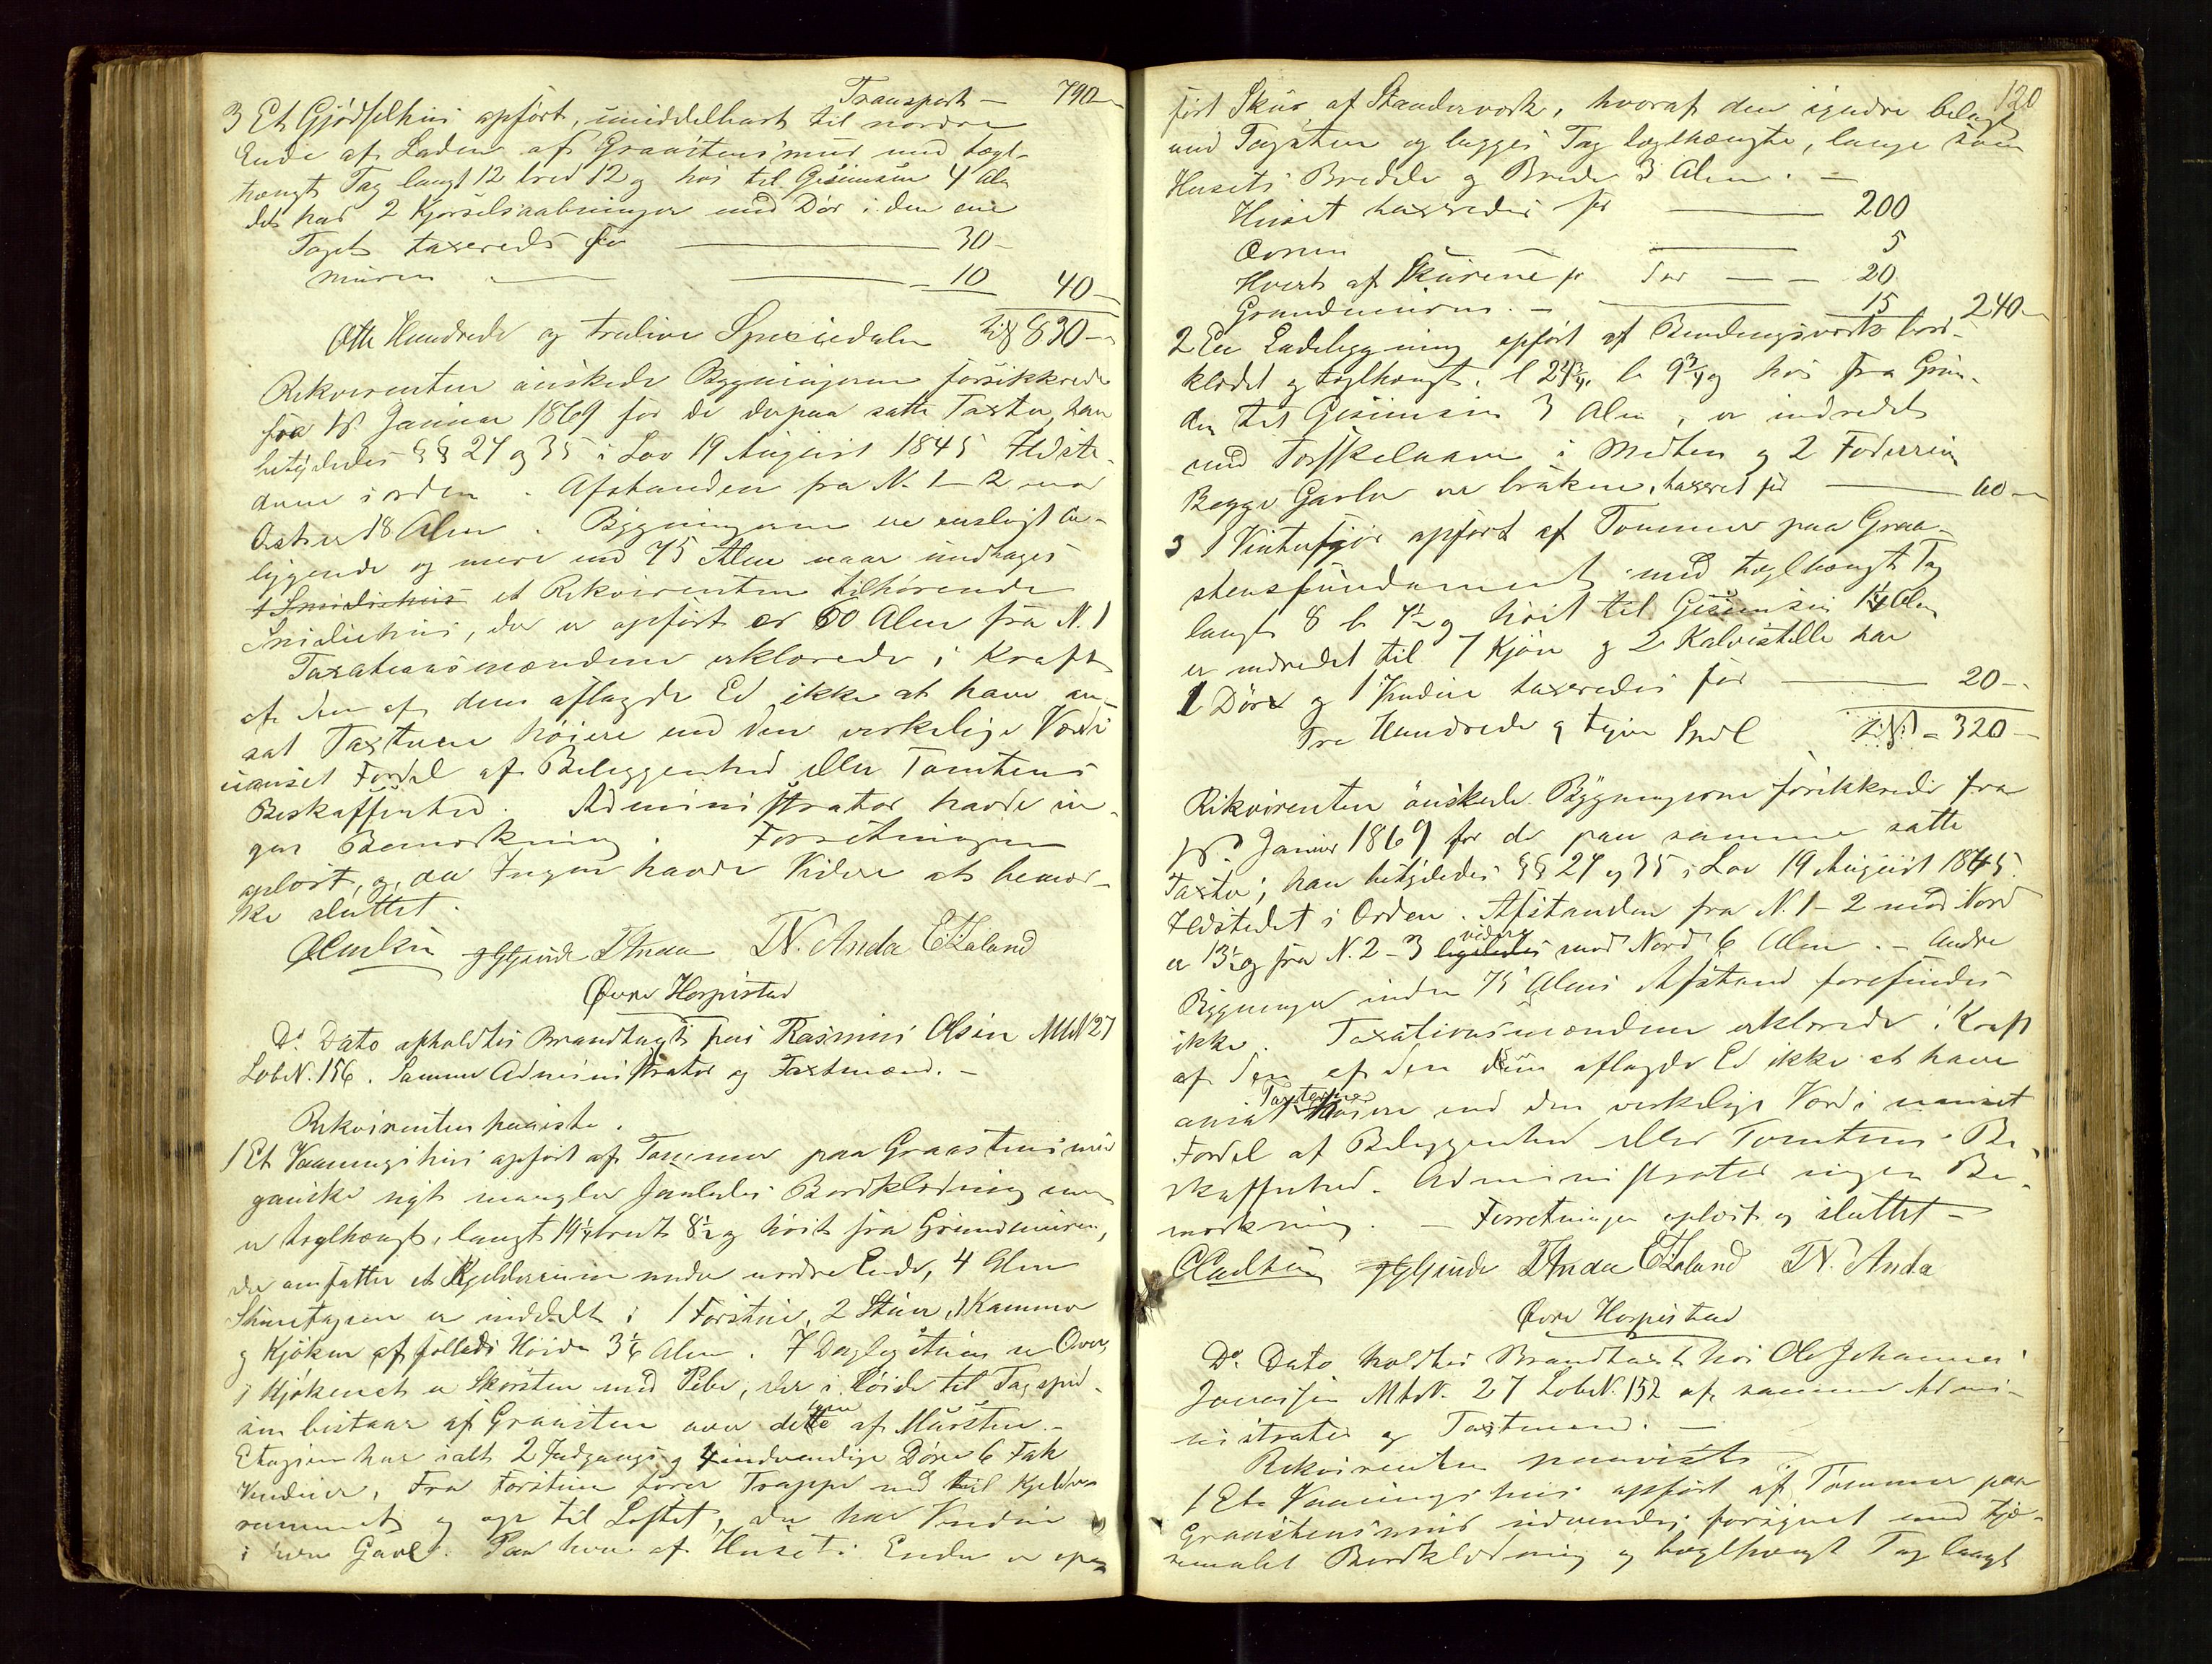 Transport — 790 —
3 Et Gjødselhus opført umiddelbart til nordre
Ende af Laden af Graastensmur med tægl-
hængt Tag langt 12 bred 12 og høi til Gesimsen 4 Aln
det har 2 Kjørselsaabninger med Dør i den ene
Taget taxeredes for — 30 —
Muren — 10 40 —
Otte Hundrede og tredive Speciedaler 830 —
Rekvirenten ønskede Bygningerne forsikkrede
fra 1st Januar 1869 for de derpaa satte Taxter, han
betydedes §§ 27 og 35 i Lov 19 August 1845 Ildste-
derne i orden. Afstanden fra N. 1–2 mod
Øst er 18 Alen. Bygningerne ere ensligt be-
liggende og mere end 75 Alen naar undtages
et Rekvirenten tilhørende
Smidiehus, der er opført er 60 Alen fra N. 1
Taxationsmændene erklærede i Kraft
af den af dem aflagde Ed ikke at have an-
sat Taxterne høiere end den virkelige Værdi
uanset Fordel af Beliggenhed eller Tomtens
Beskaffenhed. Administrator havde in-
gen Bemærkning. Forretningen
oplæst, og, da Ingen havde Videre at bemær-
ke sluttet.
T Anda TN. Anda E. T. Laland
Øvre Horpestad
Do Dato afholdtes Brandtaxt hos Rasmus Olsen MtrN 27
LobeN. 156. Samme Administrator og Taxtmænd. —
Rekvirenten paaviste.
1 Et Vaaningshus opført af Tømmer paa Graastensmur
ganske nyt mangler saaledes Bordklædning men
er tæglhængt, langt 14 1/4 bredt 8 1/2 og høit fra Grundmuren,
der omfatter et Kjelderrum under nordre Ende, 4 Alen
Stueetagen er inddelt i 1 Forstue, 2 Stuer, 1 Kammer
og Kjøken af fælleds Høide 3 1/6 Alen. I Dagligstuen er Ovn
i Kjøkenet er Skorsten med Pibe, der i Høide til Tagspid-
sen bestaar af Graasten over dette af Mursten. —
Etagen har ialt 2 Indgangs og 4 indvendige Døre 6 Fak
Vinduer. Fra Forstuen fører Trappe ned til Kjelder-
rummet og op til Loftet, der har Vindue
i hver Gavl. Paa hver af Husets Ender er op-
120
ført Skur af Standerverk, hvoraf den søndre belagt
med Tagsten og begges Tag tæglhængte, lange som
Husets Bredde og Brede 3 Alen. —
Huset taxeredes for — 200
Ovnen — 5
Hvert af Skurene for Ter — 20
Grundmuren. — 15 240 —
2 En Ladebygning opført af Bindingsverk bord-
klædet og tæglhængt. l 24 3/4, b 9 3/4 og høi fra Grun-
den til Gesimsen 3 Alen, er indredet
med Tærskelaave i Midten og 2 Foderrum
Begge Gavle ere brukne, taxeret for — 60 —
3 1 Vinterfjøs opført af Tømmer paa Graa-
stensfundament med tæglhængt Tag
langt 8 b 7 1/2 og høit til Gesimsen Alen
er indredet til 7 Kjør og 2 Kalvestelle har
1 Dør og 1 Vindue taxeredes for — 20 —
Tre Hundrede og tyve Spdl 320 —
Rekvirenten ønskede Bygningerne forsikkrede fra
1st Januar 1869 for de paa samme satte
Taxter; han betydedes §§ 27 og 35 i Lov 19 August 1845.
Ildstedet i Orden. Afstanden fra N. 1–2 mod Nord
er 13 1/2 og fra N. 2–3 videre mod Nord 6 Alen. — Andre
Bygninger inden 75 Alens Afstand forefindes
ikke. Taxationsmændene erklærede i Kraft
af den af dem aflagde Ed ikke at have
ansat Taxterne høiere end den virkelige Værdi uanset
Fordel af Beliggenhed eller Tomtens Be-
skaffenhed. Administrator ingen Be-
mærkning. — Forretningen oplæst og sluttet —
T Anda E. T. Laland TN. Anda
Øvre Horpestad
Do Dato holdtes Brandtaxt hos Ole Johannes
Jonassen MtrN. 27 LobeN. 152 af samme Admi-
nistrator og Taxtmænd. —
Rekvirenten paaviste
1 Et Vaaningshus opført af Tømmer paa
Graastensmur udvendig forsynet med tjæ-
remalet Bordklædning og tæglhængt Tag langt